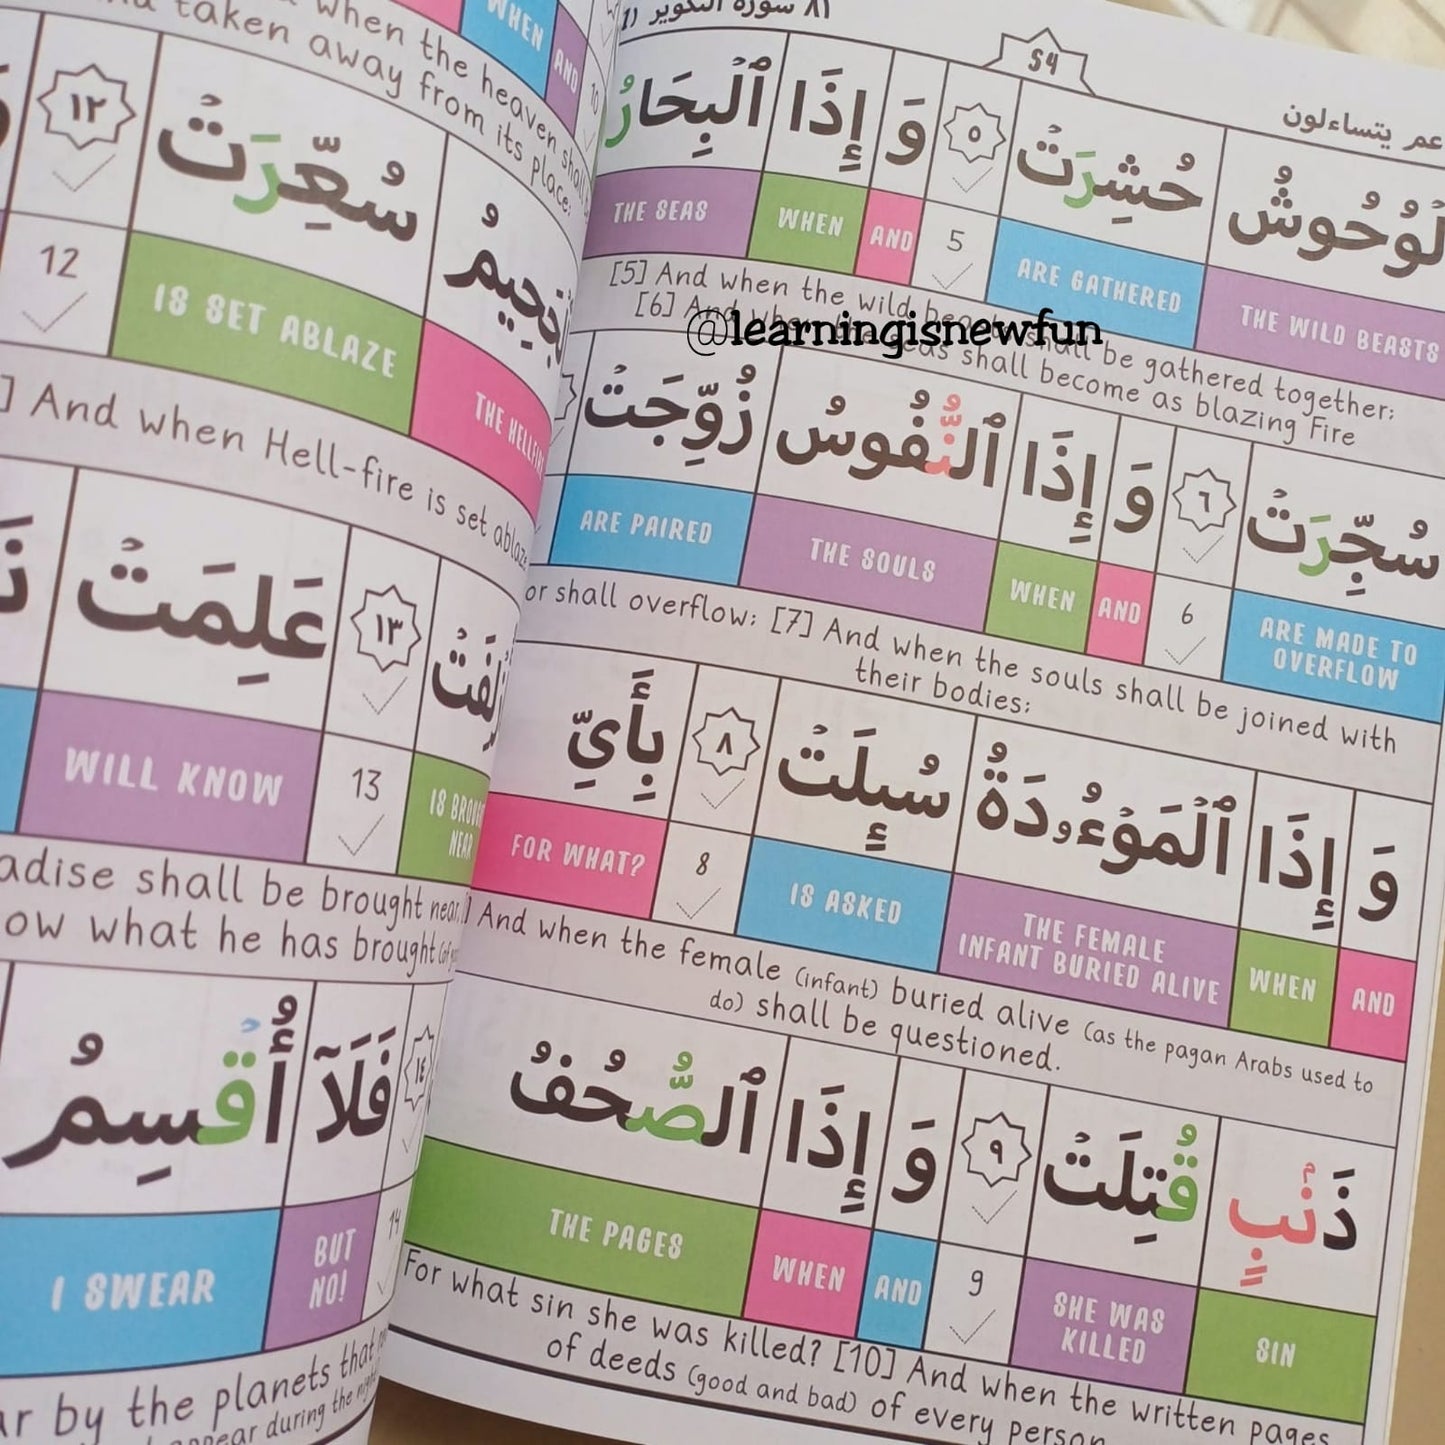 عم يتساءلون 54 ٨١ سورة التكوير
لْوُحُوشُ حُشِرَتْ ٥ وَ إِذَا ٱلْبِحَارُ
THE SEAS WHEN AND 5 ARE GATHERED THE WILD BEASTS
[5] And when the wild beasts shall be gathered together;
[6] And when the seas shall become as blazing Fire
@learningisnewfun
سُجِّرَتْ ٦ وَ إِذَا ٱلنُّفُوسُ زُوِّجَتْ
ARE PAIRED THE SOULS WHEN AND 6 ARE MADE TO OVERFLOW
or shall overflow; [7] And when the souls shall be joined with
their bodies;
وَ إِذَا ٱلْمَوْءُۥدَةُ سُئِلَتْ ٨ بِأَيِّ
FOR WHAT? 8 IS ASKED THE FEMALE INFANT BURIED ALIVE WHEN AND
And when the female (infant) buried alive (as the pagan Arabs used to
do) shall be questioned.
ذَنۢبٍ قُتِلَتْ ٩ وَ إِذَا ٱلصُّحُفُ
THE PAGES WHEN AND 9 SHE WAS KILLED SIN
For what sin she was killed? [10] And when the written pages
of deeds (good and bad) of every person
WHEN AND 10
when the heaven shall
taken away from its place;
ٱلْجَحِيمُ سُعِّرَتْ ١٢
12 IS SET ABLAZE THE HELLFIRE
] And when Hell-fire is set ablaze
أُزْلِفَتْ ١٣ عَلِمَتْ
WILL KNOW 13 IS BROUGHT NEAR
adise shall be brought near,
ow what he has brought
١٤ فَلَآ أُقْسِمُ
I SWEAR BUT NO! 14
ar by the planets that
appear during the night